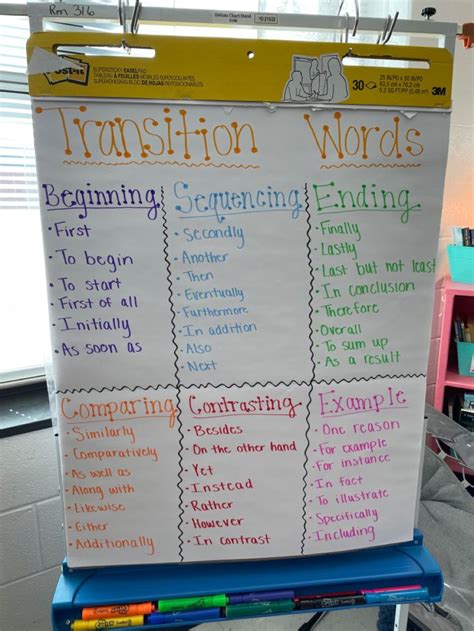 Rm 316
Transition Words
Beginning
· First
· To begin
· To start
· First of all
· Initially
· As soon as
Sequencing
· Secondly
· Another
· Then
· Eventually
· Furthermore
· In addition
· Also
· Next
Ending
· Finally
· Lastly
· Last but not least
· In conclusion
· Therefore
· Overall
· To sum up
· As a result
Comparing
· Similarly
· Comparatively
· As well as
· Along with
· Likewise
· Either
· Additionally
Contrasting
· Besides
· On the other hand
· Yet
· Instead
· Rather
· However
· In contrast
Example
· One reason
· For example
· For instance
· In fact
· To illustrate
· Specifically
· Including
Post-it
30
3M